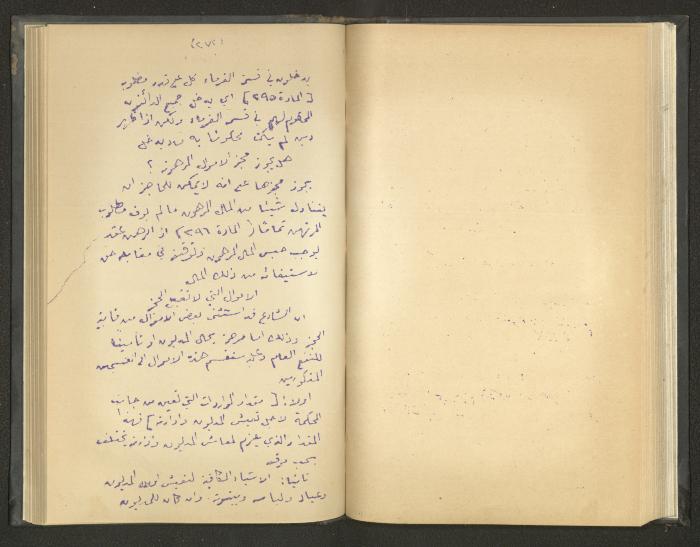 (٢٧٢)
يدخلون في قسمة الغرماء كل على قدر مطلوبه
[المادة ٢٩٥] اي يدخل جميع الدائنين
المحكوم لهم في قسمة الغرماء ولكن اذا ظهر
دين لم يكن محكوما به فلا يدخل
هل يجوز حجز الاموال المرهونة ؟
يجوز حجزها على انه لا يمكن للحاجز ان
يتناول شيئا من المال المرهون ما لم يوف مطلوب
المرتهن تماما (المادة ٢٩٦) اذ الرهن عقد
يوجب حبس المال المرهون وتوقيفه في مقابلة حق
لاستيفائه من ذلك المال
الاموال التي لا تقبل الحجز
ان الشارع قد استثنى بعض الاموال من قابلية
الحجز وذلك اما مرحمة بحال المديون او تأمينا
للمنفع العام وعليه ستقسم هذه الاموال الى القسمين
المذكورين
اولا: [مقدار الواردات التي تعين من جانب
المحكمة لاجل تعيش المديون وادارته] فهذا
المقدار الذي يلزم لمعاش المديون وادارته يختلف
بحسب موقعه
ثانيا: الاشياء الكافية لتفيش المديون
وعياله ولباسه وبيتوتته وان كان للمديون